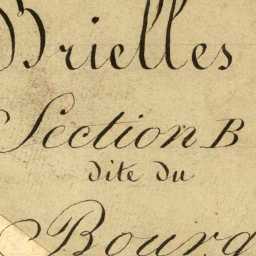 Brielles
Section B
dite du
Bourg